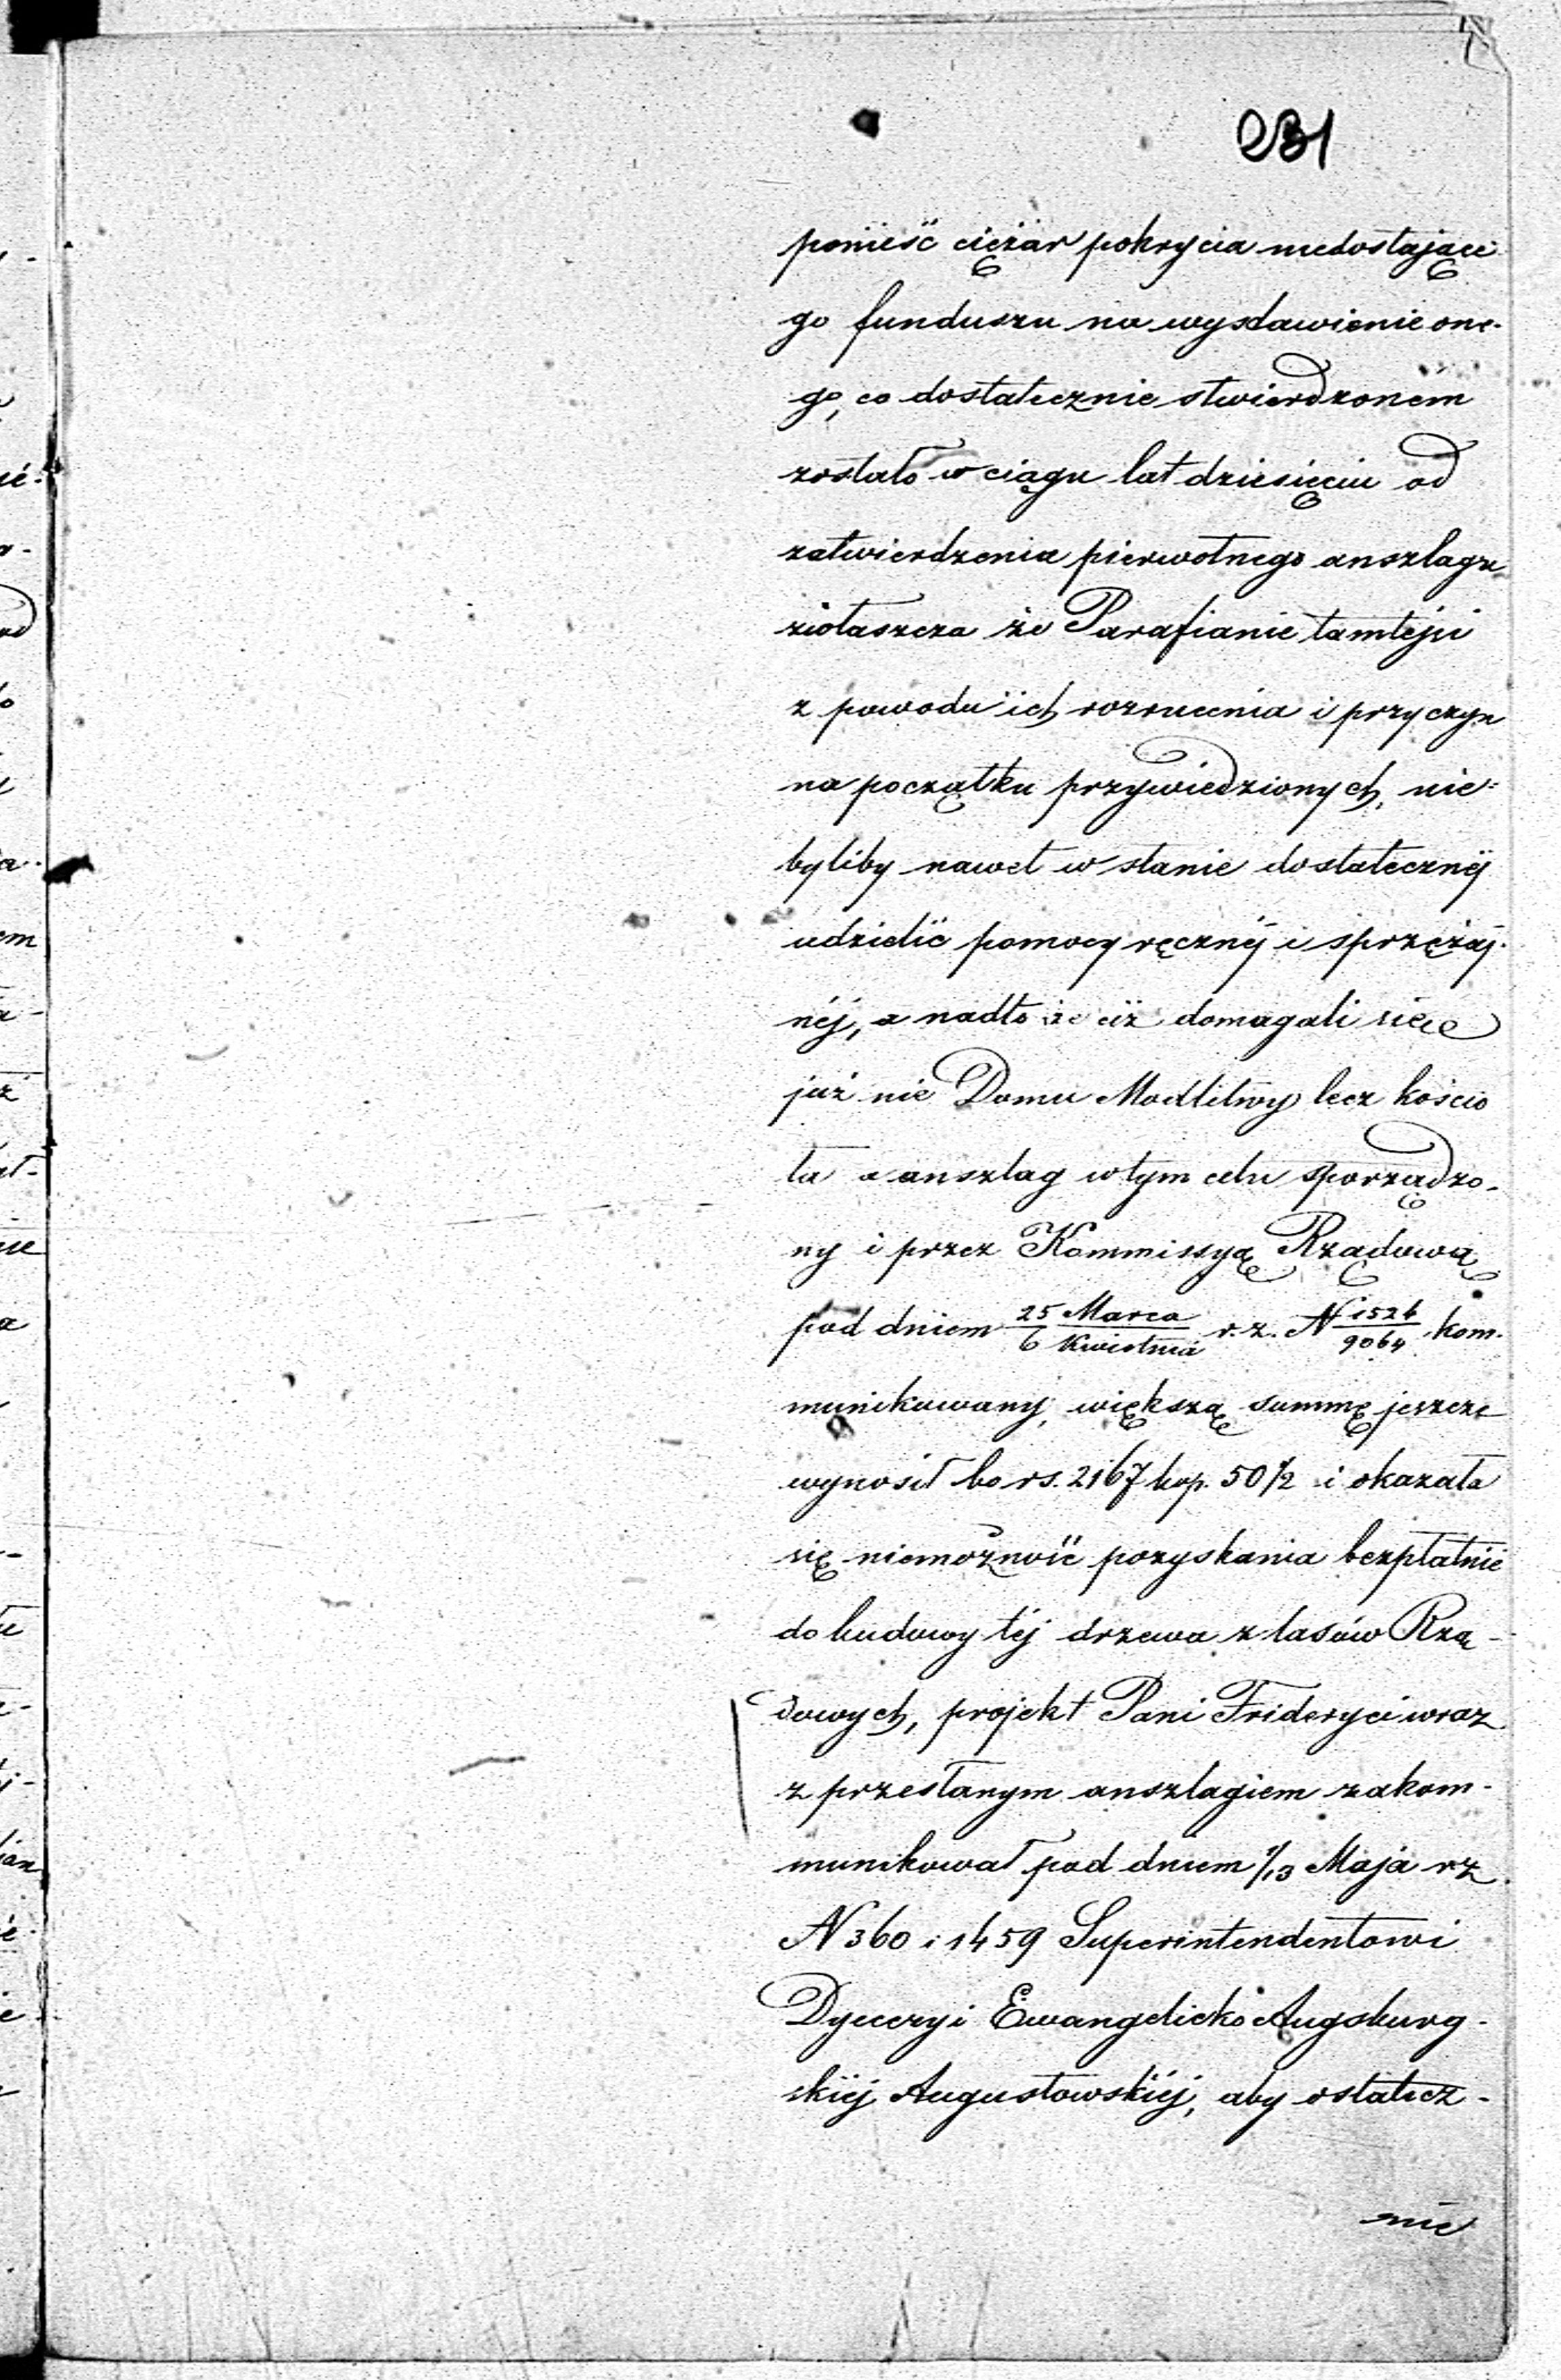 231
ponieść ciężar pokrycia niedostające-
go funduszu na wystawienie one-
go, co dostatecznie stwierdzoném
zostało w ciągu lat dziesięciu od
zatwierdzenia pierwotnego anszlagu
zwłaszcza że Parafianie tamtejsi
z powodu ich rozrzucenia i przyczyn
na początku przywiedzionych, nie-
byliby nawet w stanie dostatecznéj
udzielić pomocy ręcznéj i sprzężaj-
néj, a nadto że ciż domagali się
już nie Domu Modlitwy lecz kościo
ła a anszlag w tym celu sporządzo-
ny i przez Kommissyą Rządową
pod dniem 25 Marca / 6 Kwietnia r. z. N 1526/9064 kom-
munikowany, większą summę jeszcze
wynosił bo rs. 2167 kop. 50 1/2 i okazała
się niemożność pozyskania bezpłatnie
do budowy téj drzewa z lasów Rzą-
dowych, projekt Pani Frideryci wraz
z przesłanym anszlagiem zakom-
munikował pod dniem 1/13 Maja rz.
N 360 i 1459 Superintendentowi
Dyecezyi Ewangelicko Augsburg-
skiéj Augustowskiéj, aby ostatecz-
nie